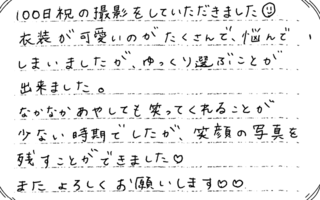 100日祝の撮影をしていただきました☺
衣装が可愛いのがたくさんで、悩んで
しまいましたが、ゆっくり選ぶことが
出来ました。
なかなかあやしても笑ってくれることが
少ない時期でしたが、笑顔の写真を
残すことができました♡
また よろしく お願いします♡♡